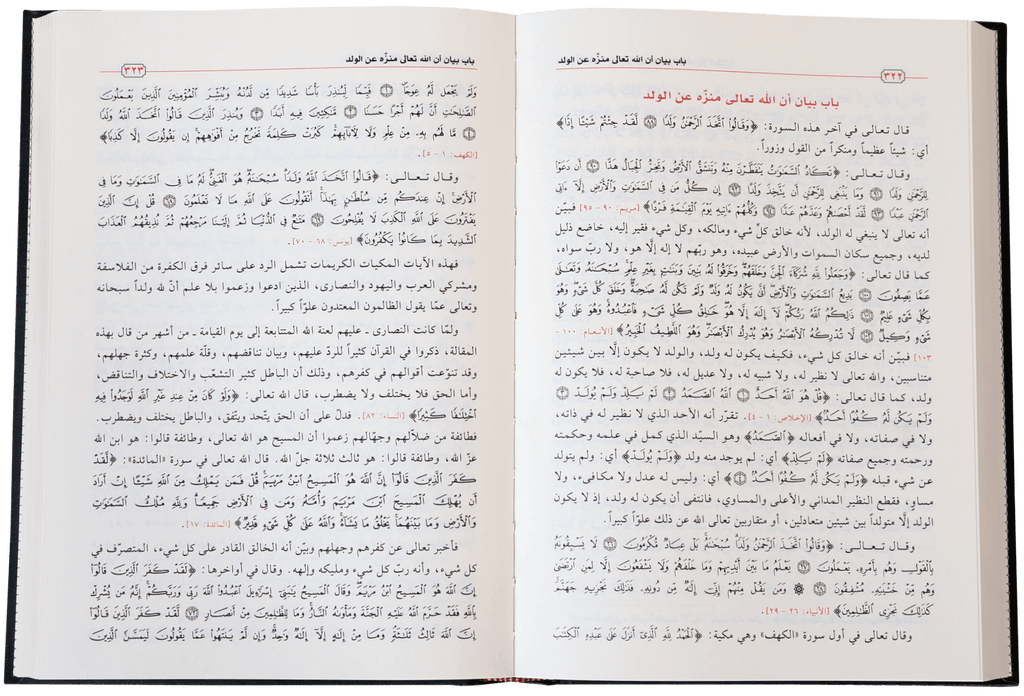 باب بيان أن الله تعالى منزّه عن الولد
٣٢٢
باب بيان أن الله تعالى منزّه عن الولد
قال تعالى في آخر هذه السورة: ﴿وَقَالُوا اتَّخَذَ الرَّحْمَٰنُ وَلَدًا ﴿٨٨﴾ لَّقَدْ جِئْتُمْ شَيْئًا إِدًّا﴾
أي: شيئاً عظيماً ومنكراً من القول وزوراً.
وقال تعالى: ﴿تَكَادُ السَّمَٰوَٰتُ يَتَفَطَّرْنَ مِنْهُ وَتَنشَقُّ الْأَرْضُ وَتَخِرُّ الْجِبَالُ هَدًّا ﴿٩٠﴾ أَن دَعَوْا
لِلرَّحْمَٰنِ وَلَدًا ﴿٩١﴾ وَمَا يَنۢبَغِى لِلرَّحْمَٰنِ أَن يَتَّخِذَ وَلَدًا ﴿٩٢﴾ إِن كُلُّ مَن فِى السَّمَٰوَٰتِ وَالْأَرْضِ إِلَّآ ءَاتِى
الرَّحْمَٰنِ عَبْدًا ﴿٩٣﴾ لَّقَدْ أَحْصَىٰهُمْ وَعَدَّهُمْ عَدًّا ﴿٩٤﴾ وَكُلُّهُمْ ءَاتِيهِ يَوْمَ الْقِيَٰمَةِ فَرْدًا﴾ [مريم: ٩٠ - ٩٥] فبيّن
أنه تعالى لا ينبغي له الولد، لأنه خالق كلّ شيء ومالكه، وكل شيء فقير إليه، خاضع ذليل
لديه، وجميع سكان السموات والأرض عبيده، وهو ربّهم لا إله إلَّا هو، ولا ربّ سواه،
كما قال تعالى: ﴿وَجَعَلُوا لِلَّهِ شُرَكَآءَ الْجِنَّ وَخَلَقَهُمْ وَخَرَقُوا لَهُ بَنِينَ وَبَنَٰتٍۭ بِغَيْرِ عِلْمٍ سُبْحَٰنَهُ وَتَعَٰلَىٰ
عَمَّا يَصِفُونَ ﴿١٠٠﴾ بَدِيعُ السَّمَٰوَٰتِ وَالْأَرْضِ أَنَّىٰ يَكُونُ لَهُ وَلَدٌ وَلَمْ تَكُن لَّهُ صَٰحِبَةٌ وَخَلَقَ كُلَّ شَىْءٍ وَهُوَ
بِكُلِّ شَىْءٍ عَلِيمٌ ﴿١٠١﴾ ذَٰلِكُمُ اللَّهُ رَبُّكُمْ لَآ إِلَٰهَ إِلَّا هُوَ خَٰلِقُ كُلِّ شَىْءٍ فَاعْبُدُوهُ وَهُوَ عَلَىٰ كُلِّ
شَىْءٍ وَكِيلٌ ﴿١٠٢﴾ لَّا تُدْرِكُهُ الْأَبْصَٰرُ وَهُوَ يُدْرِكُ الْأَبْصَٰرَ وَهُوَ اللَّطِيفُ الْخَبِيرُ﴾ [الأنعام: ١٠٠ -
١٠٣] فبيّن أنه خالق كل شيء، فكيف يكون له ولد، والولد لا يكون إلَّا بين شيئين
متناسبين، والله تعالى لا نظير له، ولا شبيه له، ولا عديل له، فلا صاحبة له، فلا يكون له
ولد، كما قال تعالى: ﴿قُلْ هُوَ اللَّهُ أَحَدٌ ﴿١﴾ اللَّهُ الصَّمَدُ ﴿٢﴾ لَمْ يَلِدْ وَلَمْ يُولَدْ ﴿٣﴾
وَلَمْ يَكُن لَّهُ كُفُوًا أَحَدٌ﴾ [الإخلاص: ١ - ٤]. تقرّر أنه الأحد الذي لا نظير له في ذاته،
ولا في صفاته، ولا في أفعاله ﴿الصَّمَدُ﴾ وهو السيّد الذي كمل في علمه وحكمته
ورحمته وجميع صفاته ﴿لَمْ يَلِدْ﴾ أي: لم يوجد منه ولد ﴿وَلَمْ يُولَدْ﴾ أي: ولم يتولد
عن شيء قبله ﴿وَلَمْ يَكُن لَّهُ كُفُوًا أَحَدٌ ﴿٤﴾﴾ أي: وليس له عدل ولا مكافىء، ولا
مساوٍ، فقطع النظير المداني والأعلى والمساوي، فانتفى أن يكون له ولد، إذ لا يكون
الولد إلَّا متولداً بين شيئين متعادلين، أو متقاربين تعالى الله عن ذلك علوّاً كبيراً.
وقال تعالى: ﴿وَقَالُوا اتَّخَذَ الرَّحْمَٰنُ وَلَدًا سُبْحَٰنَهُ بَلْ عِبَادٌ مُّكْرَمُونَ ﴿٢٦﴾ لَا يَسْبِقُونَهُ
بِالْقَوْلِ وَهُم بِأَمْرِهِ يَعْمَلُونَ ﴿٢٧﴾ يَعْلَمُ مَا بَيْنَ أَيْدِيهِمْ وَمَا خَلْفَهُمْ وَلَا يَشْفَعُونَ إِلَّا لِمَنِ ارْتَضَىٰ
وَهُم مِّنْ خَشْيَتِهِ مُشْفِقُونَ ﴿٢٨﴾ ۞ وَمَن يَقُلْ مِنْهُمْ إِنِّى إِلَٰهٌ مِّن دُونِهِ فَذَٰلِكَ نَجْزِيهِ جَهَنَّمَ
كَذَٰلِكَ نَجْزِى الظَّٰلِمِينَ﴾ [الأنبياء: ٢٦ - ٢٩].
وقال تعالى في أول سورة «الكهف» وهي مكية: ﴿الْحَمْدُ لِلَّهِ الَّذِىٓ أَنزَلَ عَلَىٰ عَبْدِهِ الْكِتَٰبَ
باب بيان أن الله تعالى منزّه عن الولد
٣٢٣
وَلَمْ يَجْعَل لَّهُ عِوَجًا ﴿١﴾ قَيِّمًا لِّيُنذِرَ بَأْسًا شَدِيدًا مِّن لَّدُنْهُ وَيُبَشِّرَ الْمُؤْمِنِينَ الَّذِينَ يَعْمَلُونَ
الصَّٰلِحَٰتِ أَنَّ لَهُمْ أَجْرًا حَسَنًا ﴿٢﴾ مَّٰكِثِينَ فِيهِ أَبَدًا ﴿٣﴾ وَيُنذِرَ الَّذِينَ قَالُوا اتَّخَذَ اللَّهُ وَلَدًا
﴿٤﴾ مَّا لَهُم بِهِ مِنْ عِلْمٍ وَلَا لِآبَآئِهِمْ كَبُرَتْ كَلِمَةً تَخْرُجُ مِنْ أَفْوَٰهِهِمْ إِن يَقُولُونَ إِلَّا كَذِبًا﴾
[الكهف: ١ - ٥].
وقال تعالى: ﴿قَالُوا اتَّخَذَ اللَّهُ وَلَدًا سُبْحَٰنَهُ هُوَ الْغَنِىُّ لَهُ مَا فِى السَّمَٰوَٰتِ وَمَا فِى
الْأَرْضِ إِنْ عِندَكُم مِّن سُلْطَٰنٍۭ بِهَٰذَآ أَتَقُولُونَ عَلَى اللَّهِ مَا لَا تَعْلَمُونَ ﴿٦٨﴾ قُلْ إِنَّ الَّذِينَ
يَفْتَرُونَ عَلَى اللَّهِ الْكَذِبَ لَا يُفْلِحُونَ ﴿٦٩﴾ مَتَٰعٌ فِى الدُّنْيَا ثُمَّ إِلَيْنَا مَرْجِعُهُمْ ثُمَّ نُذِيقُهُمُ الْعَذَابَ
الشَّدِيدَ بِمَا كَانُوا يَكْفُرُونَ﴾ [يونس: ٦٨ - ٧٠].
فهذه الآيات المكيات الكريمات تشمل الرد على سائر فرق الكفرة من الفلاسفة
ومشركي العرب واليهود والنصارى، الذين ادعوا وزعموا بلا علم أنّ لله ولداً سبحانه
وتعالى عمّا يقول الظالمون المعتدون علوّاً كبيراً.
ولمّا كانت النصارى ـ عليهم لعنة الله المتتابعة إلى يوم القيامة ـ من أشهر من قال بهذه
المقالة، ذكروا في القرآن كثيراً للردّ عليهم، وبيان تناقضهم، وقلّة علمهم، وكثرة جهلهم،
وقد تنوّعت أقوالهم في كفرهم، وذلك أن الباطل كثير التشعّب والاختلاف والتناقض،
وأما الحق فلا يختلف ولا يضطرب، قال الله تعالى: ﴿وَلَوْ كَانَ مِنْ عِندِ غَيْرِ اللَّهِ لَوَجَدُوا فِيهِ
اخْتِلَٰفًا كَثِيرًا﴾ [النساء: ٨٢]. فدلّ على أن الحق يتّحد ويتّفق، والباطل يختلف ويضطرب.
فطائفة من ضلّالهم وجهّالهم زعموا أن المسيح هو الله تعالى، وطائفة قالوا: هو ابن الله
عزّ الله، وطائفة قالوا: هو ثالث ثلاثة جلّ الله. قال الله تعالى في سورة «المائدة»: ﴿لَّقَدْ
كَفَرَ الَّذِينَ قَالُوٓا إِنَّ اللَّهَ هُوَ الْمَسِيحُ ابْنُ مَرْيَمَ قُلْ فَمَن يَمْلِكُ مِنَ اللَّهِ شَيْئًا إِنْ أَرَادَ
أَن يُهْلِكَ الْمَسِيحَ ابْنَ مَرْيَمَ وَأُمَّهُ وَمَن فِى الْأَرْضِ جَمِيعًا وَلِلَّهِ مُلْكُ السَّمَٰوَٰتِ
وَالْأَرْضِ وَمَا بَيْنَهُمَا يَخْلُقُ مَا يَشَآءُ وَاللَّهُ عَلَىٰ كُلِّ شَىْءٍ قَدِيرٌ﴾ [المائدة: ١٧].
فأخبر تعالى عن كفرهم وجهلهم وبيّن أنه الخالق القادر على كل شيء، المتصرّف في
كل شيء، وأنه ربّ كل شيء ومليكه وإلهه. وقال في أواخرها: ﴿لَقَدْ كَفَرَ الَّذِينَ قَالُوٓا
إِنَّ اللَّهَ هُوَ الْمَسِيحُ ابْنُ مَرْيَمَ وَقَالَ الْمَسِيحُ يَٰبَنِىٓ إِسْرَٰٓءِيلَ اعْبُدُوا اللَّهَ رَبِّى وَرَبَّكُمْ إِنَّهُ مَن يُشْرِكْ
بِاللَّهِ فَقَدْ حَرَّمَ اللَّهُ عَلَيْهِ الْجَنَّةَ وَمَأْوَىٰهُ النَّارُ وَمَا لِلظَّٰلِمِينَ مِنْ أَنصَارٍ ﴿٧٢﴾ لَّقَدْ كَفَرَ الَّذِينَ قَالُوٓا
إِنَّ اللَّهَ ثَالِثُ ثَلَٰثَةٍ وَمَا مِنْ إِلَٰهٍ إِلَّآ إِلَٰهٌ وَٰحِدٌ وَإِن لَّمْ يَنتَهُوا عَمَّا يَقُولُونَ لَيَمَسَّنَّ الَّذِينَ